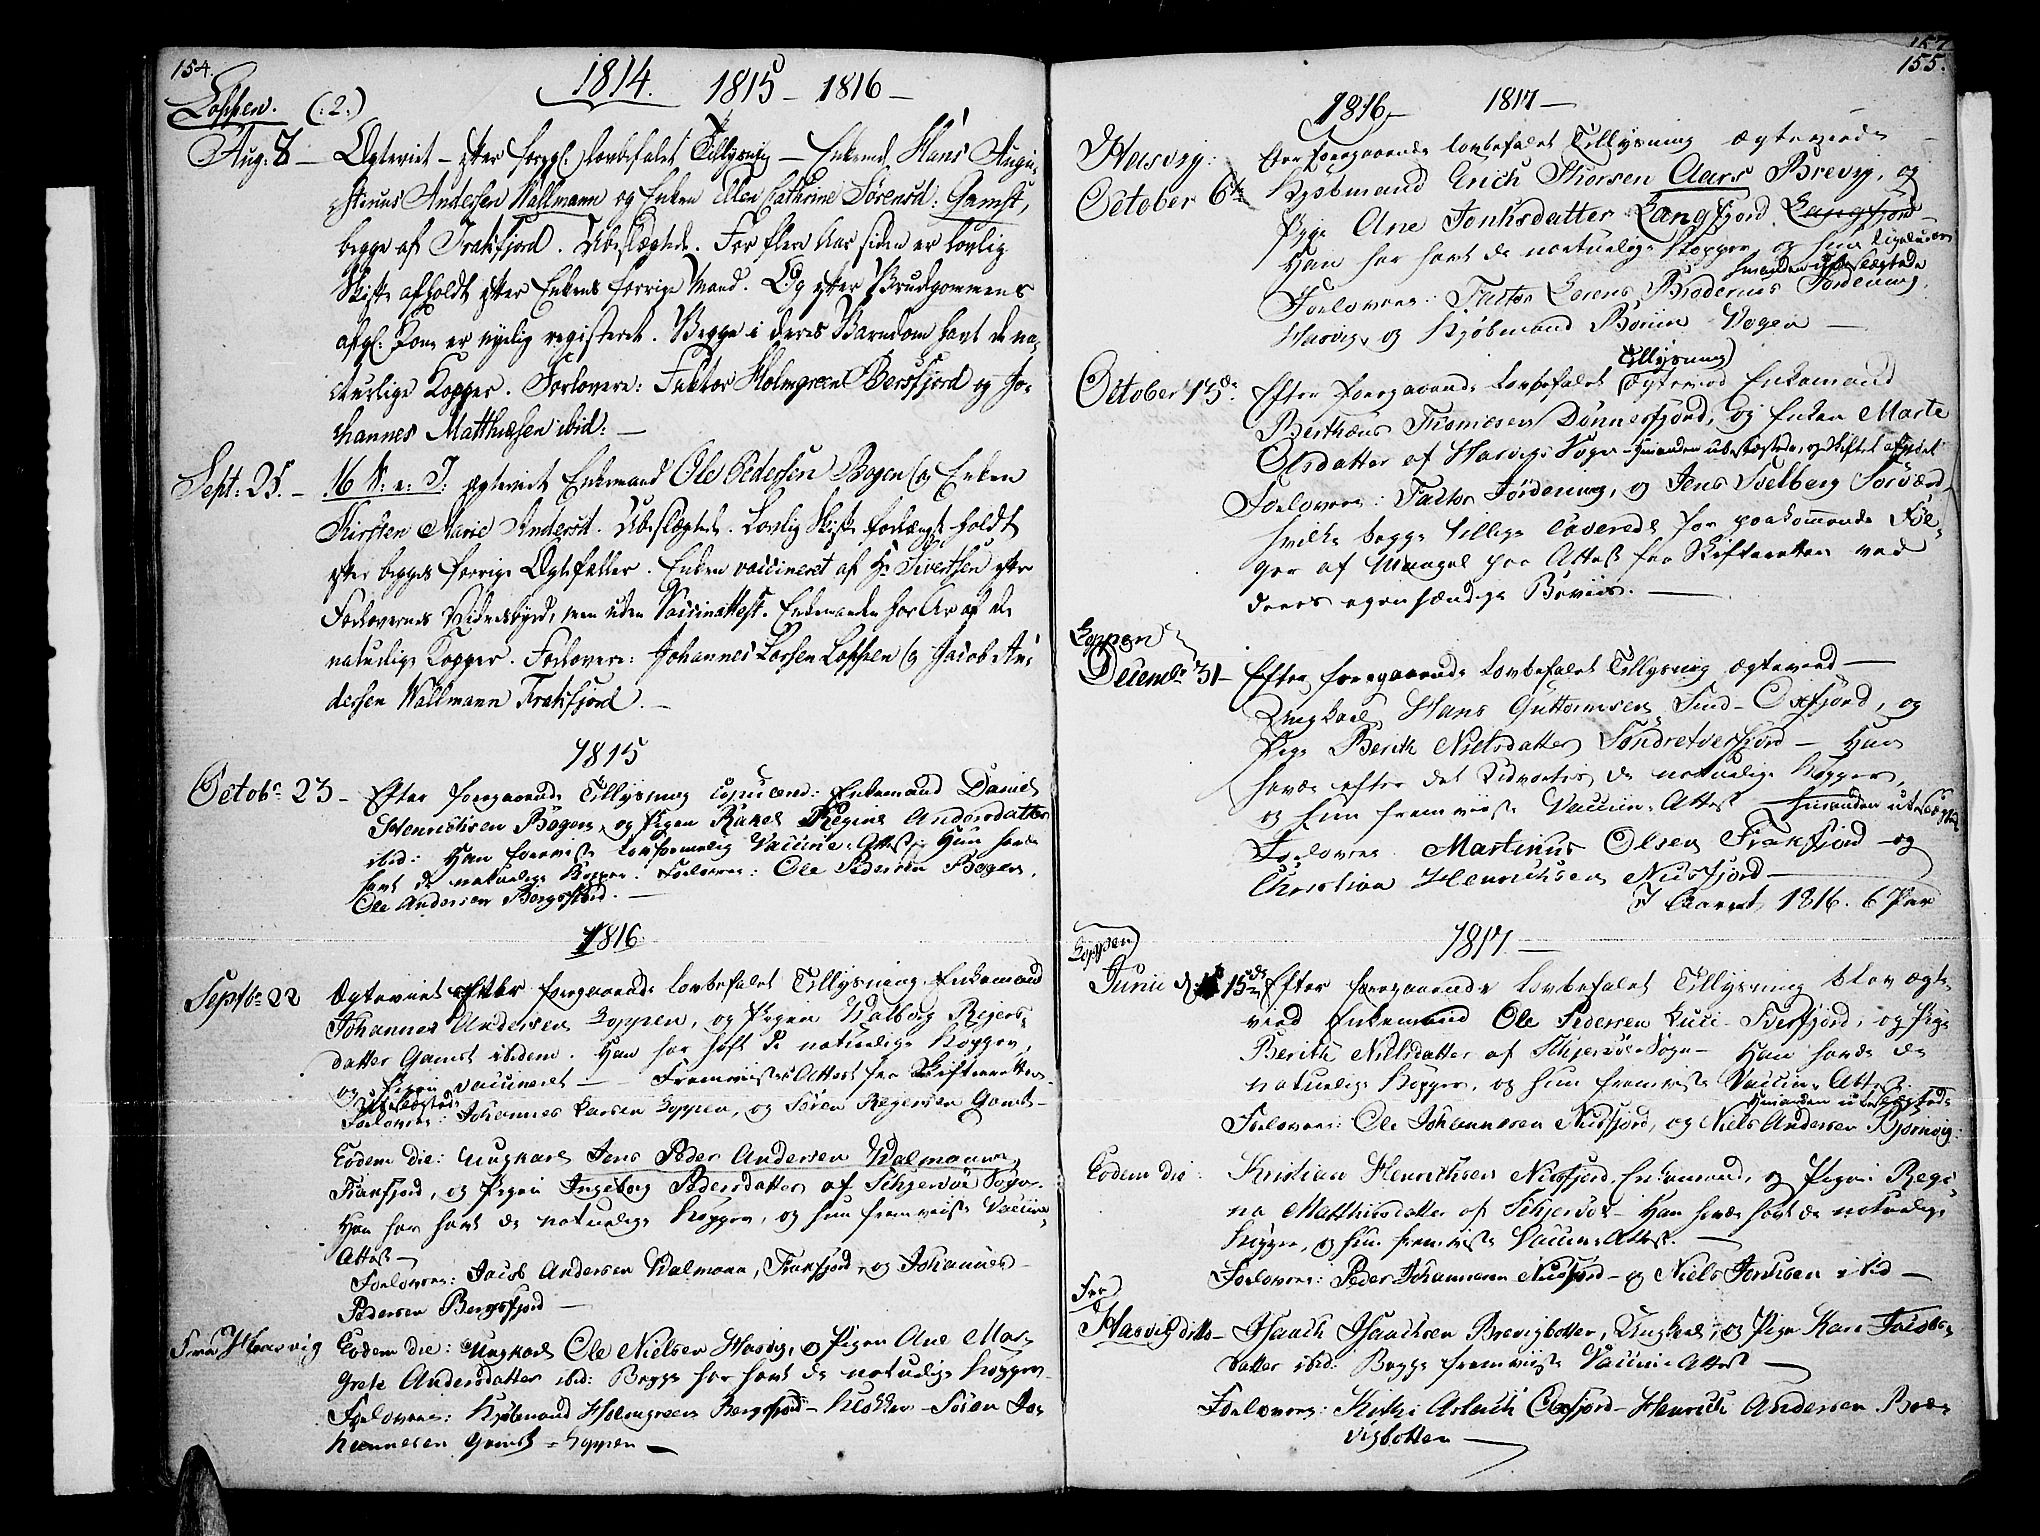 154.
1814. 1815 - 1816 -
Loppen. (:2:)
Aug: 8 - Ægteviet - efter foregl. lovbefalet Tillysning - Enkemd. Hans Augu-
stinus Andersen Wallmann og Enken Ellen Cathrine Sørensd: Gamst,
begge af Frakfjord. Ubeslægtede. For flere Aar siden er lovlig
Skifte afholdt efter Enkens forrige Mand. Og efter Brudgommens
afgl. Kone er nyelig registeret. Begge i deres Barndom havt de na-
turlige Kopper. Forlovere: Faktor Holmgreen Bersfjord og Jo-
hannes Matthiesen ibid: -
Sept: 25. - 16 S: e: T: ægteviet Enkemand Ole Pedersen Bogen og Enken
Kirsten Marie Andersd. Ubeslægtede. Lovlig Skifte forlængst holdt
efter begges forrige Ægtefæller. Enken vaccineret af Hr Sivertsen efter
Forlovernes Vidnesbyrd, men uden Vaccinattest. Enkemanden har Ar af de
naturlige Kopper. Forlovere: Johannes Larsen Loppen og Jacob An-
dersen Wallmann Frakfjord. -
1815
Octobr 23 - Efter foregaaende Tillysning copulered: Enkemand Daniel
Henrichsen Bogen, og Pigen Rakel Regine Andersdatter
ibid: Han foreviste lovformelig Vaccine-Attest, Hun havde
havt de naturlige Kopper. Forlovere: Ole Pedersen Bogen,
Ole Andersen Bergsfiord. -
1816
Septbr 22 Ægteviet efter foregaaende lovbefalet Tillysning Enkemand
Johannes Andersen Loppen, og Pigen Walborg Regers-
datter Gamst ibidem. Han har haft de naturlige Kopper,
og Pigen vaccineret - Fremviiste Attest fra Skifteretten.
Ubeslægtede
Forlovere: Johannes Larsen Loppen, og Sören Regersen Gamst -
Eodem die: Ungkarl Jens Peder Andersen Walmann,
Frakfjord, og Pigen Ingeborg Pedersdatter af Schjervöe Sogn.
Han har havt de naturlige Kopper, og hun fremviiste Vaccine
Attest -
Forlovere: Jacob Andersen Walmann, Frakfjord, og Johannes
Pedersen Bergsfjord -
Fra Hasvig Eodem die: Ungkarl Ole Nielsen Hasvig, og Pigen Ane Mar-
grete Andersdatter ibid: Begge har havt de naturlige Kopper
Forlovere: Kjøbmand Holmgreen Bergsfjord - Klokker - Sören Jo-
hannesen Gamst - Loppen -
157
155.
1816, 1817 -
Hasvig:
October 6te Efter foregaaende lovbefalet Tillysning ægteviede
Kjøbmand Erich Thorsen Aars Brevig, og
Pige Ane Jonhsdatter Langfjord Langfjord -
Han har havt de naturlige Kopper, og hun ligeledes
hinanden ubeslægtede
Forlovere: Factor Lorens Broderus Jordening
Hasvig, og Kjøbmand Bovün Vogen -
October 13de Efter foregaaende lovbefalet Tillysning ægteviet Enkemand
Berthæus Thomesen Dönnesfjord, og Enken Marte
Olsdatter af Hasvigs Sogn - hinanden ubeslægtede, og Skiftet afgjort
Forlovere: Factor Jördening, og Jens Soelberg Sörvær
hvilke begge tillige caverede for paakommende Föl-
ger af Mangel paa Attest fra Skifteretten ved
deres egenhændige Beviis. -
Loppen
Decembr 31 - Efter foregaaende lovbefalet Tillysning ægteviid -
Ungkarl Hans Guttormsen Sund-Oxfjord, og
Pige Berith Nielsdatter Söndretverfjord - Han
havde efter det Udvortes de naturlige Kopper,
og hun fremviiste Vaccine-Attest - hinanden ubeslægtede
Forlovere Martinus Olsen Frakfjord - og
Christian Henrichsen Nusfjord -
I Aaret 1816. 6 Par
1817 -
Loppen
Junii d: 15de Efter foregaaende lovbefalet Tillysning blev ægte-
viid Enkemand Ole Pedersen Luci-Sverfjord, og Pige
Berith Nielsdatter af Schjervöe Sogn - Han havde de
naturlige Kopper, og hun fremviste Vaccine Attest
hinanden ubeslægtede
Forlovere: Ole Johannesen Nusfjord, og Niels Andersen Bjornvig:
Eodem die: Kristian Henrichsen Nusfjord, Enkemand, og Pigen Regi-
na Matthiisdatter af Schjervöe - Han havde havt de naturlige
Kopper, og hun fremviste Vaccine Attest. -
Forlovere: Peder Johannesen Nusfjord - og Niels Jonhsen ibid -
Fra
Hasvig dito - Isaach Isaachsen Brevigbotten, Ungkarl, og Pige Karen Jacobs-
datter ibid: Begge fremviiste Vaccine-Attest -
Forlovere: Aslach Oxfjord - Henrich Andersen Bre-
vigbotten -